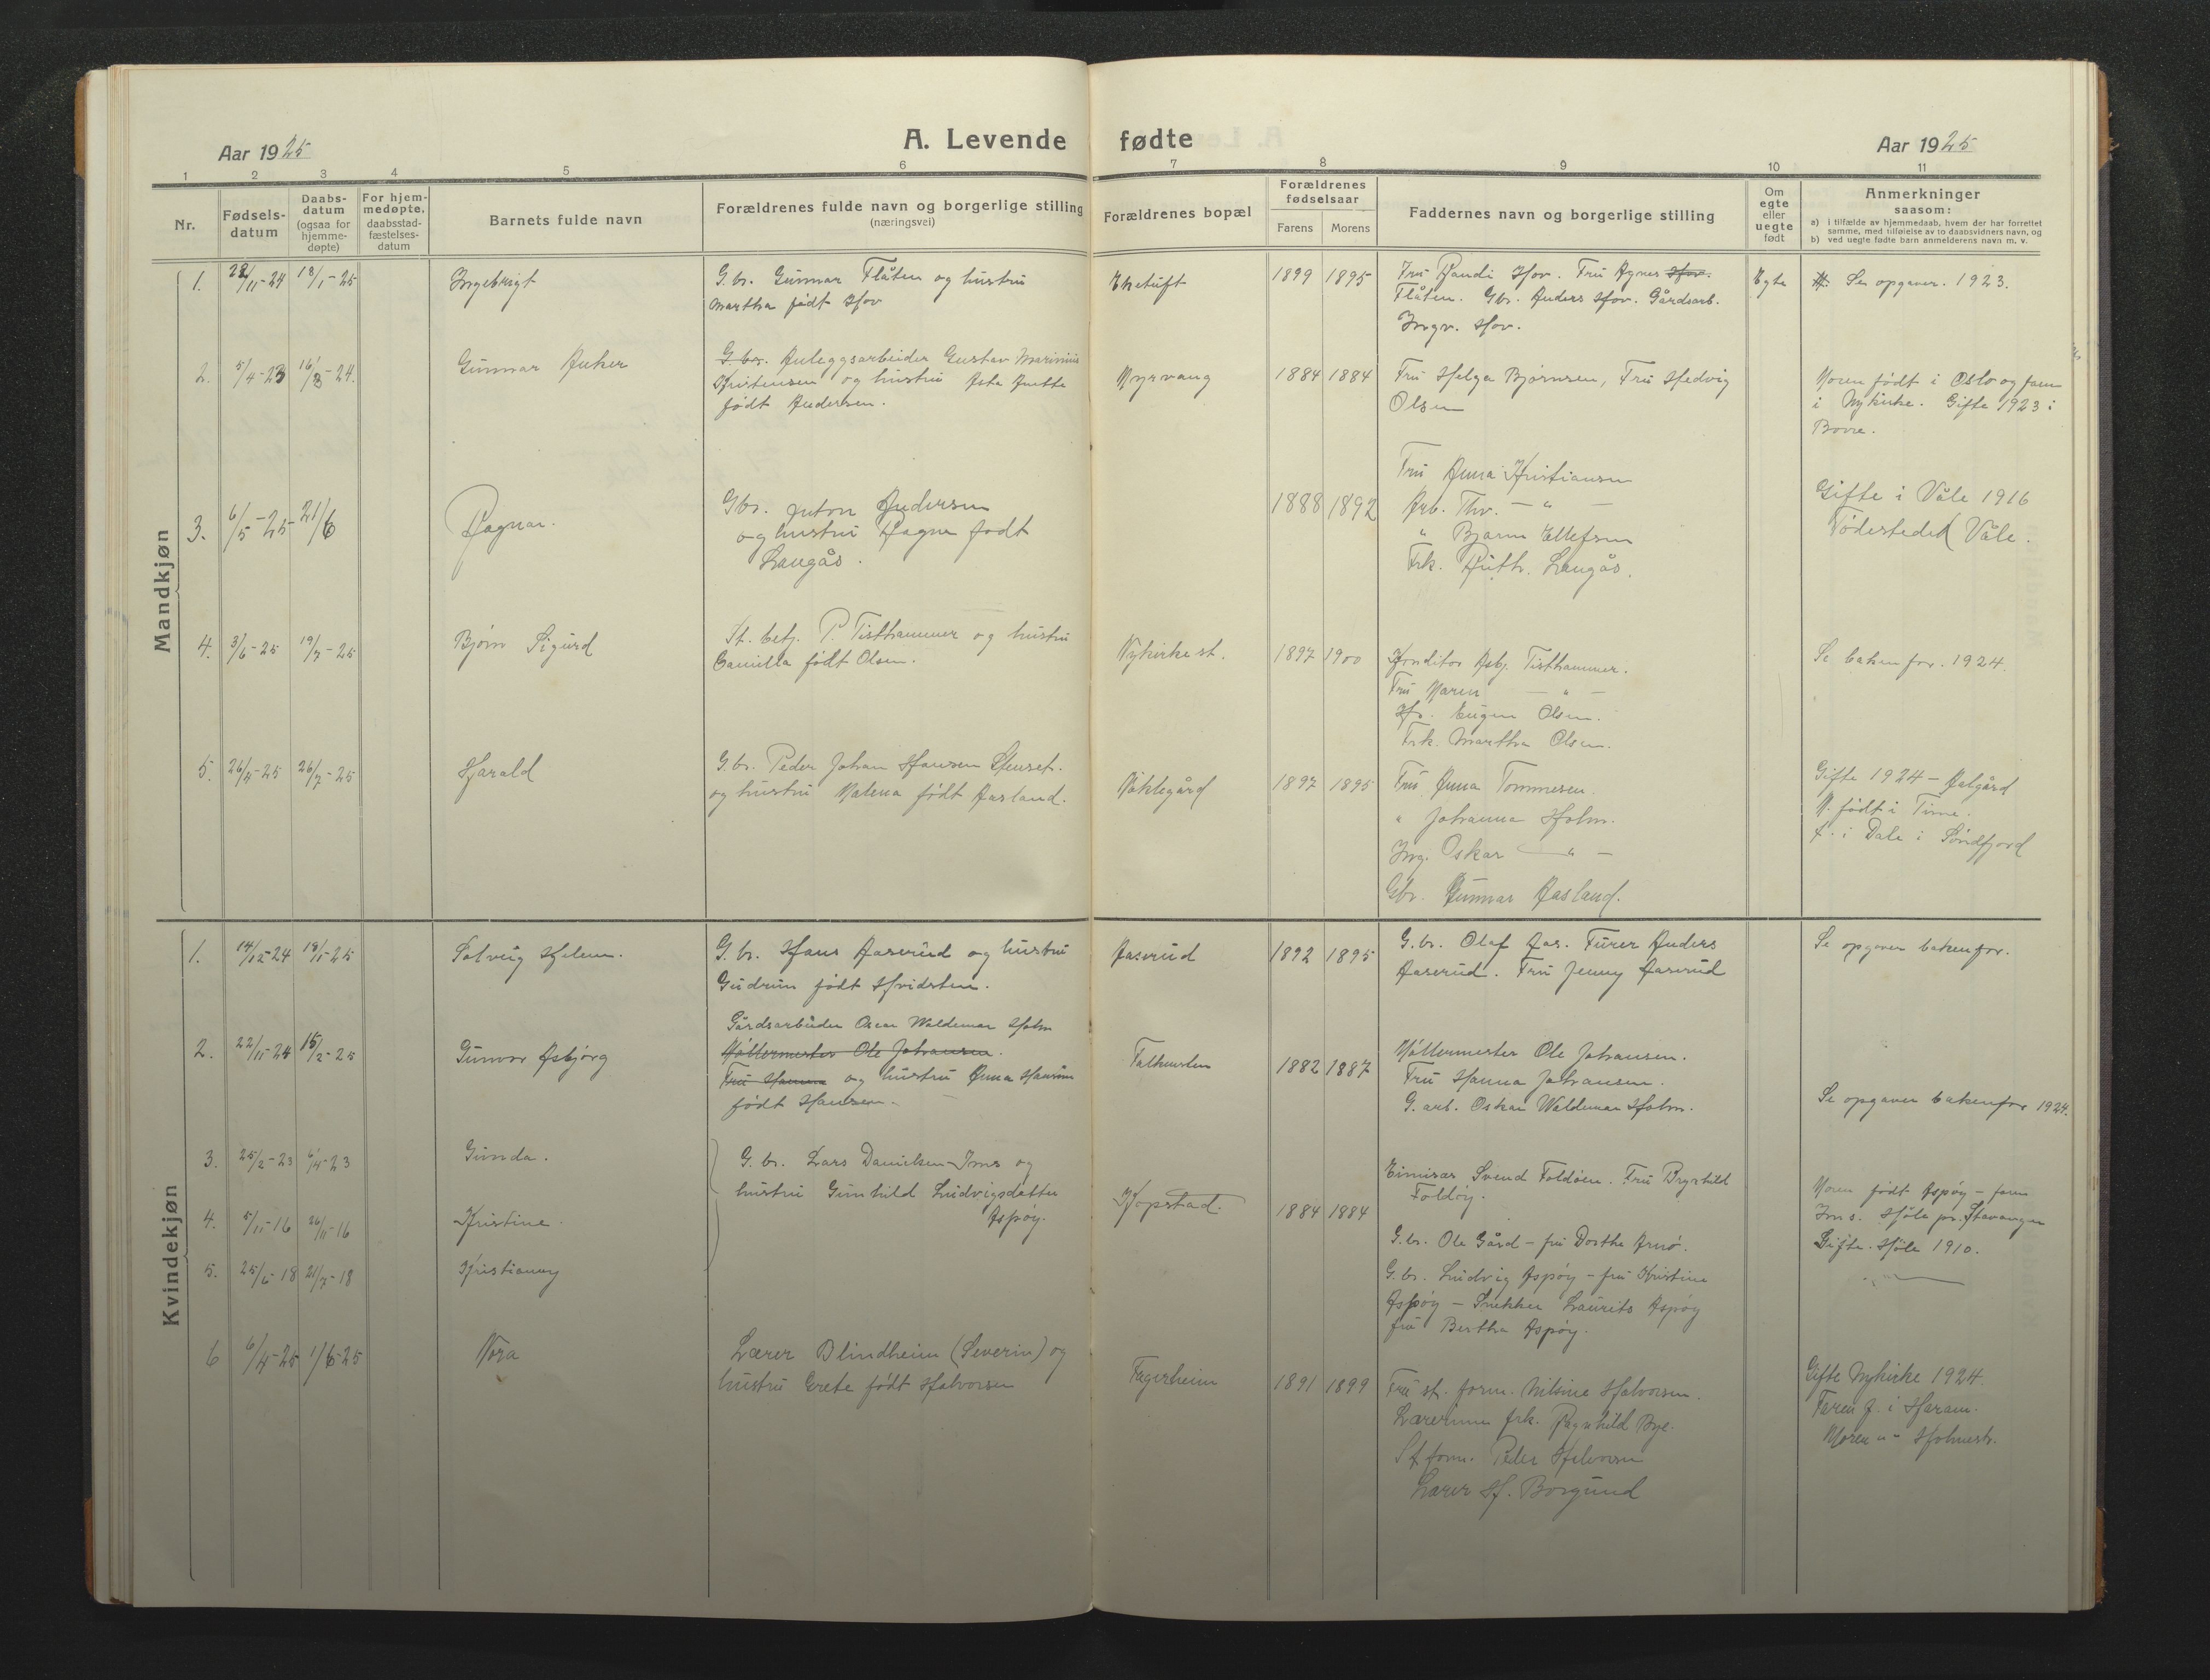 A. Levende fødte
Aar 1925
Aar 1925
1 2 3 4 5 6 7 8 9 10 11
Nr.
Fødsels-
datum
Daabs-
datum
(ogsaa for
hjemme-
døpte)
For hjem-
medøpte,
daabsstad-
fæstelses-
datum
Barnets fulde navn
Forældrenes fulde navn og borgerlige stilling
(næringsvei)
Forældrenes bopæl
Forældrenes
fødselsaar
Farens Morens
Faddernes navn og borgerlige stilling
Om
egte
eller
uegte
født
Anmerkninger
saasom:
a) i tilfælde av hjemmedaab, hvem der har forrettet
samme, med tilføielse av to daabsvidners navn, og
b) ved uegte fødte barn anmelderens navn m. v.
Mandkjøn
1. 28/11-24 18/1-25 Ingebrigt
G.br. Gunnar Flåten og hustru
Martha født Hov
Eketuft 1899 1895
Fru Randi Hov. Fru Agnes Hov.
Flåten. Gbr. Anders Hov. Gårdsarb.
Ingv. Hov.
Egte
Se opgaver. 1923.
2. 5/4-23 16/3-24. Gunnar Anker
G br. Anleggsarbeider Gustav Marinius
Kristensen og hustru Asta Anette
født Andersen.
Myrvang 1884 1884
Fru Helga Bjørnsen, Fru Hedvig
Olsen
Moren født i Oslo og faren
i Nykirke. Gifte 1923 i
Borre.
3. 6/5-25 21/6 Ragnar.
Gbr. Anton Andersen
og hustru Ragna født
Langås.
1888 1892
Fru Anna Kristiansen
Arb. Thv. — " —
" Bjarne Ellefsen
Frk. Ruth. Langås.
Gifte i Våle 1916
Fødestedet Våle.
4. 3/6-25 19/7-25 Bjørn Sigurd
St. betj. P. Tisthammer og hustru
Camilla født Olsen.
Nykirke st. 1897 1900
Konditor Asbj. Tisthammer.
Fru Maren — " —
Hr. Eugen Olsen.
Frk. Martha Olsen.
Se bakenfor. 1924.
5. 26/4-25 26/7-25 Harald
G.br. Peder Johan Hansen Stenset.
og hustru Malena født Aasland.
Røklegård 1897 1895
Fru Anna Tommesen.
" Johanna Holm.
Ing. Oskar — " —
Gbr. Gunnar Aasland.
Gifte 1924 – Aalgård
M. født i Time.
F. i Dale i Søndfjord
Kvindekjøn
1. 14/12-24 18/1-25 Solveig Helene.
G.br. Hans Aaserud og hustru
Gudrun født Hvidsten.
Aaserud 1892 1895
G.br. Olaf Aas. Furer Anders
Aaserud. Fru Jenny Aaserud
Se opgaver bakenfor.
2. 22/11-24 15/2-25 Gunvor Asbjørg
Gårdsarbeider Oscar Waldemar Holm
Møllermester Ole Johansen.
Fru Hanna og hustru Anna Hansine
født Hansen.
Falkensten 1882 1887
Møllermester Ole Johansen.
Fru Hanna Johansen.
G. arb. Oskar Waldemar Holm.
Se opgaver bakenfor 1924.
3. 25/2-23 6/4-23 Gunda.
4. 5/11-16 26/11-16 Kristine.
5. 25/6-18 21/7-18 Kristianny
G.br. Lars Danielsen Ims og
hustru Gunhild Ludvigsdatter
Aspøy.
Kopstad. 1884 1884
Svend Foldøen. Fru Brynhild
Foldøy.
G.br. Ole Gård – fru Dorthe
G.br. Ludvig Aspøy – fru Kristine
Aspøy – Snekker Laurits Aspøy
fru Bertha Aspøy.
Moren født Aspøy – faren
Ims. Høle pr. Stavanger
Gifte. Høle 1910.
6 6/4-25 1/6-25 Nora
Lærer Blindheim (Severin) og
hustru Grete født Halvorsen
Fagerheim 1891 1899
Fru st. form. Nilsine Halvorsen.
Lærerinne frk. Ragnhild Bye.
St. form. Peder Halvorsen
Lærer H. Borgund
Gifte Nykirke 1924.
Faren f. i Haram.
Moren " " Holmestr.